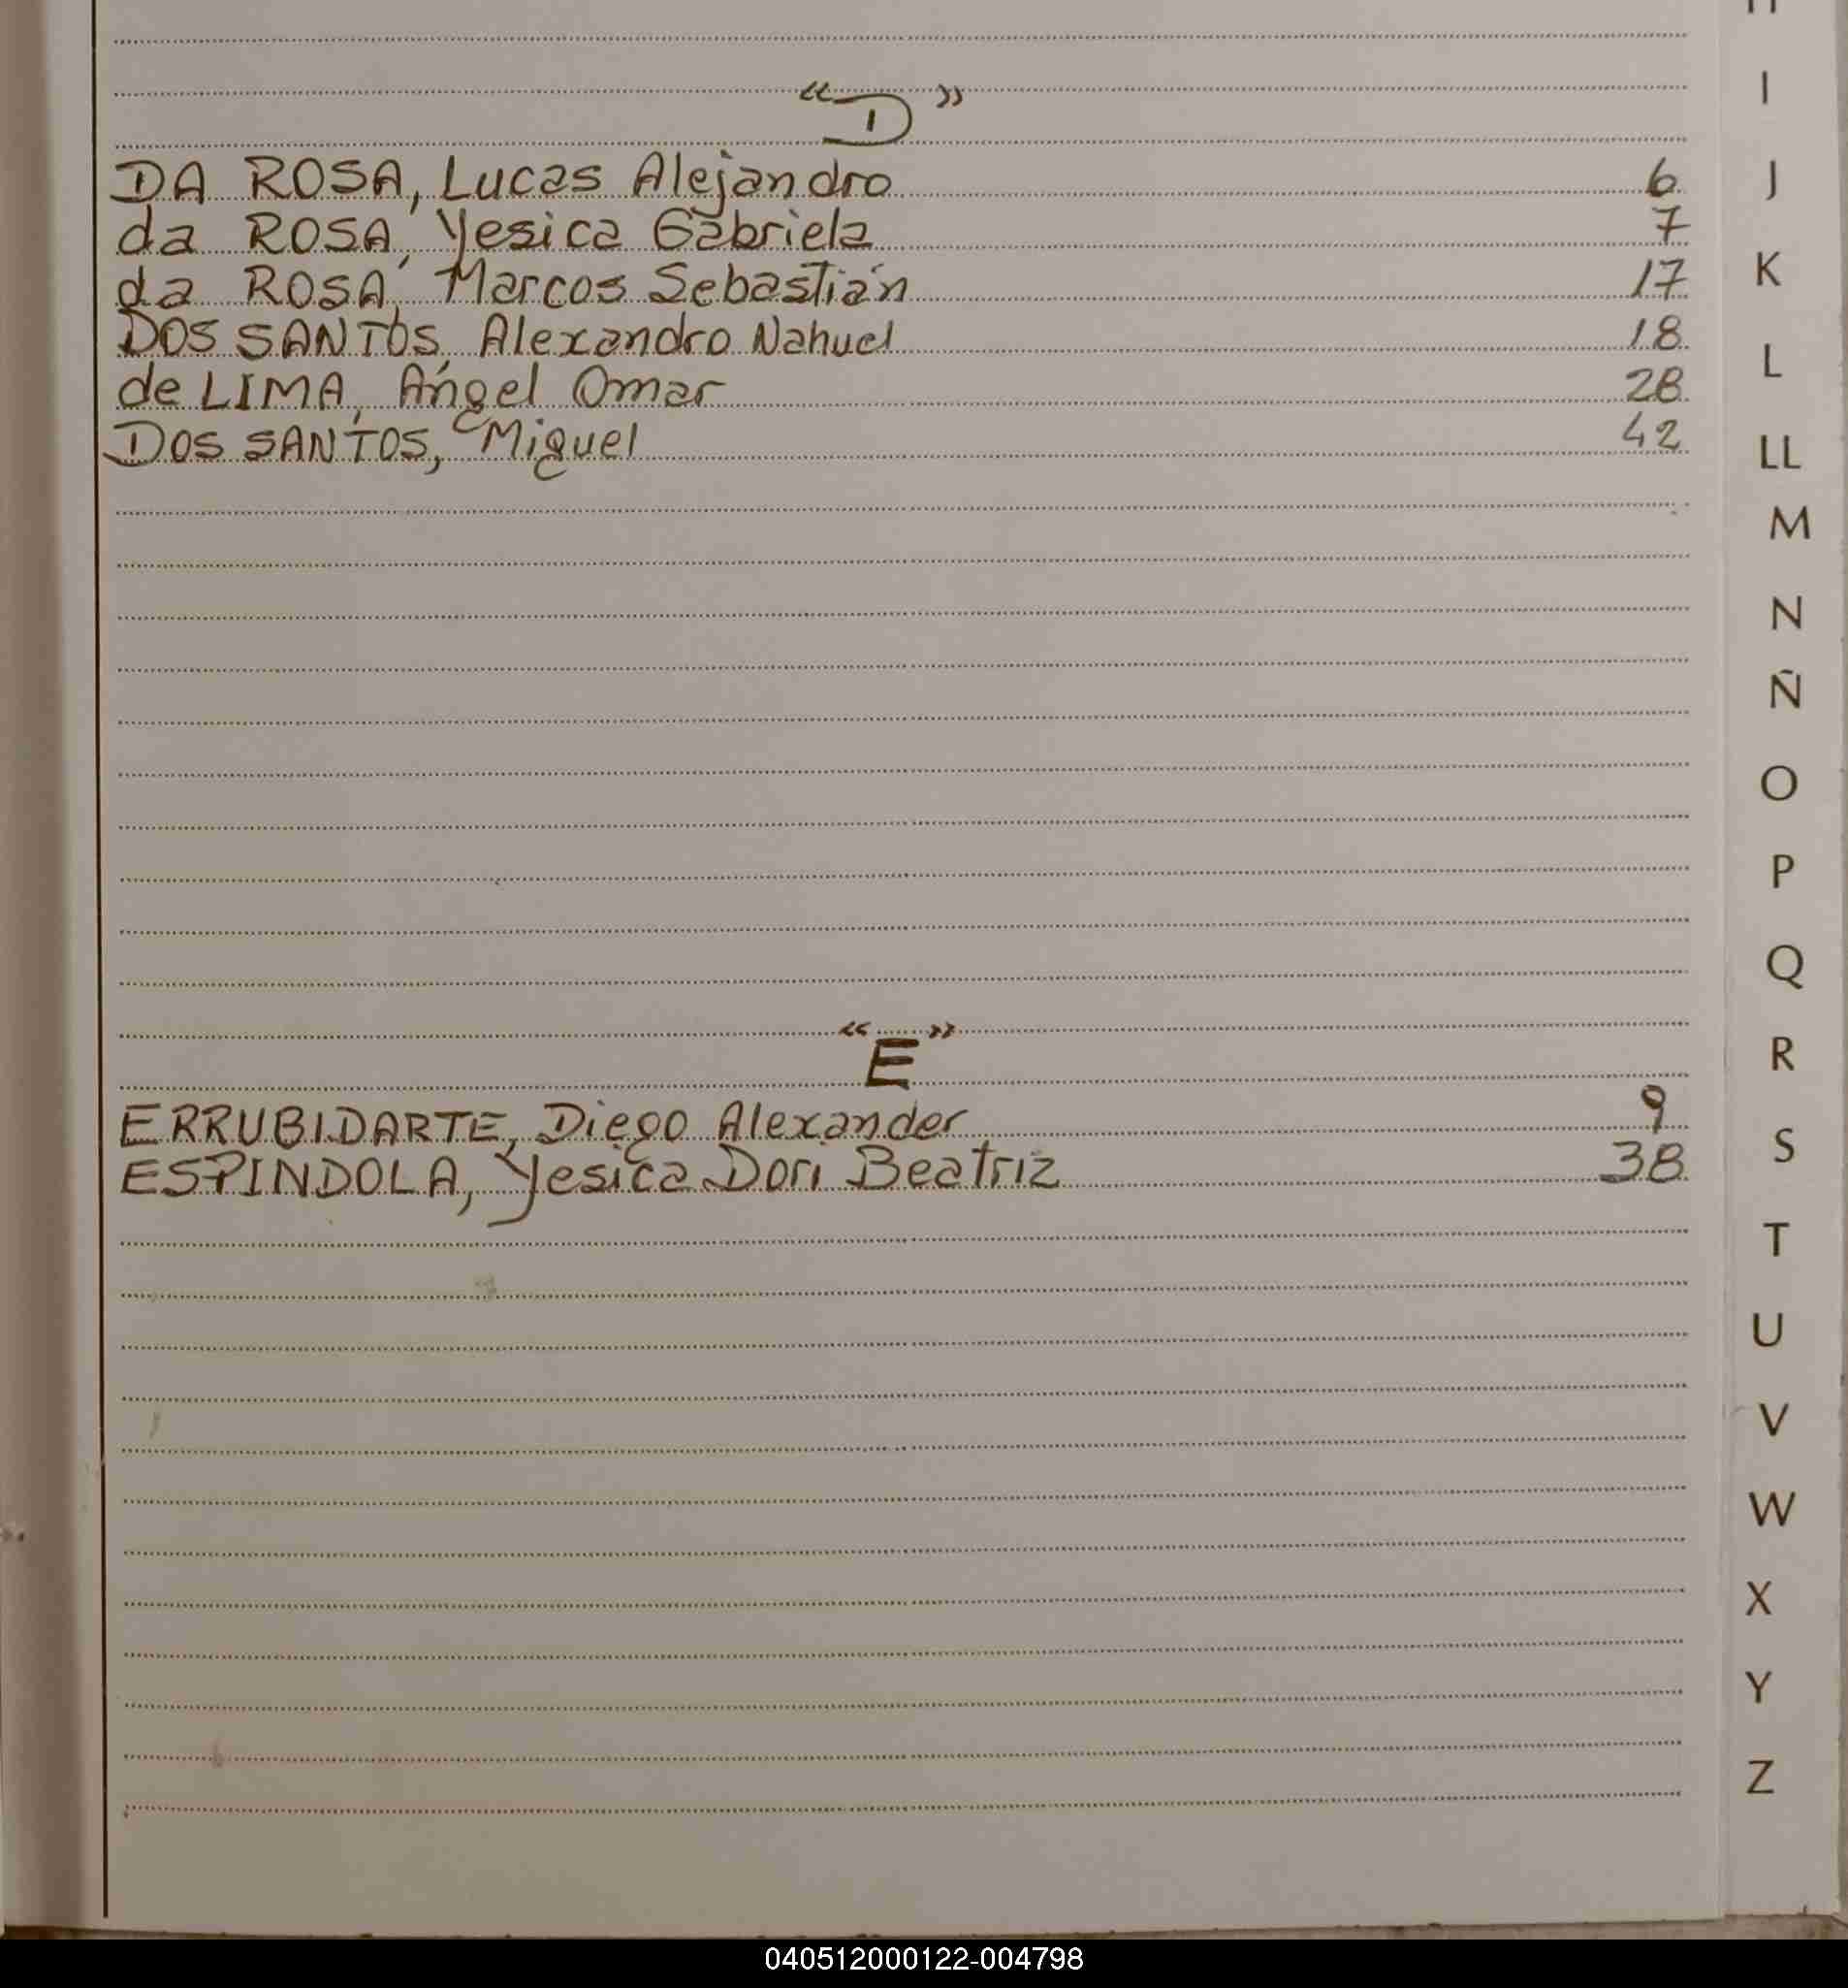 “D”
DA ROSA, Lucas Alejandro 6
da ROSA, Yesica Gabriela 7
da ROSA, Marcos Sebastián 17
DOS SANTOS, Alexandro Nahuel 18
de LIMA, Ángel Omar 28
DOS SANTOS, Miguel 42
“E”
ERRUBIDARTE, Diego Alexander 9
ESPINDOLA, Yesica Dori Beatriz 38
I
J
K
L
LL
M
N
Ñ
O
P
Q
R
S
T
U
V
W
X
Y
Z
040512000122-004798